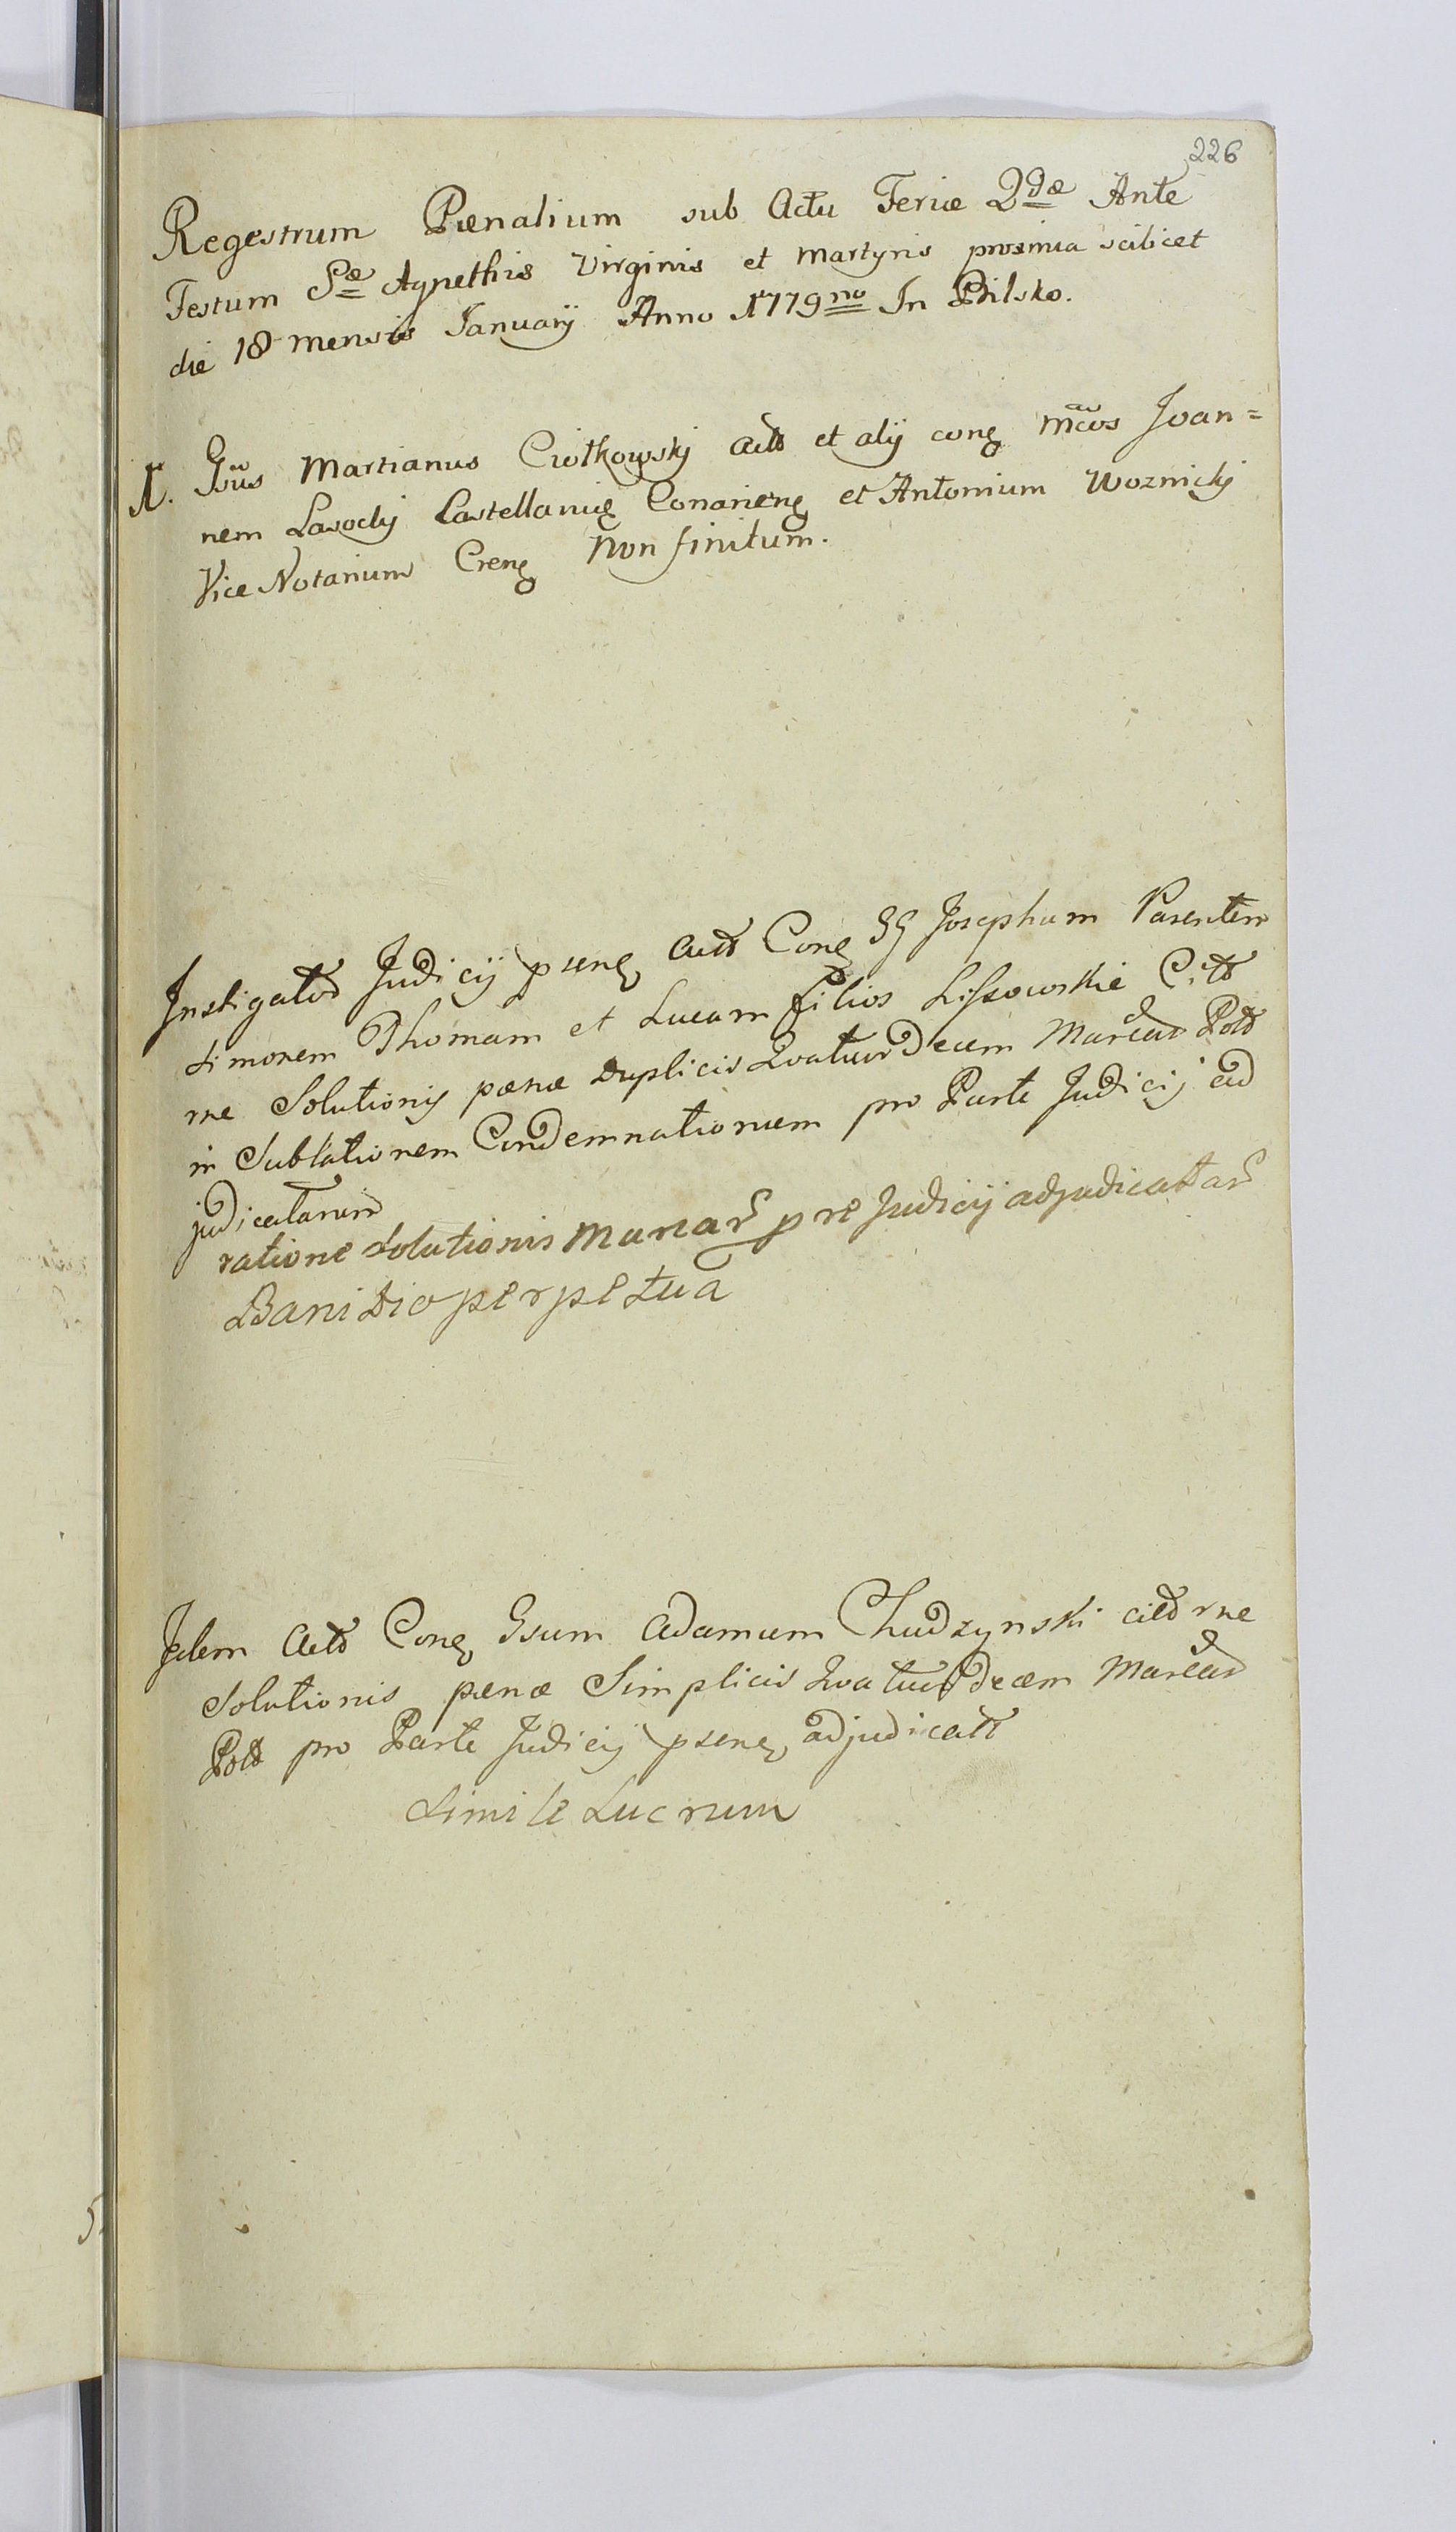 226
Regestrum Pænalium sub Actu Feriæ 2dæ Ante
Festum Sæ Agnethis Virginis et Martyris proxima scilicet
die 18 mensis Januarÿ Anno 1779no In Bilsko.
1. Gsus Martianus Ciółkowskÿ actt et alÿ cone mcos Joan=
nem Lasockÿ Castellanie Conariene et Antonium Woznickÿ
Vice Notarium Crene Non finitum.
Instigator Judicÿ psene actt Cone GG Josephum Parentem
Simonem Thomam et Lucam filios Lissowskie Citt
rne Solutionis pænæ duplicis Quatuordecem Marcar Poll
in Sublationem Condemnationem pro Parte Judicÿ ad
judicatarum
ratione solutionis Marcar pre Judicÿ adjudicatar
Banitio perpetua
Idem Actt Cone Gsum Adamum Chudzynski citt rne
Solutionis pænæ Simplicis Quatuordecem Marcar
Poll pro Parte Judicÿ psene adjudicatt
Simile Lucrum